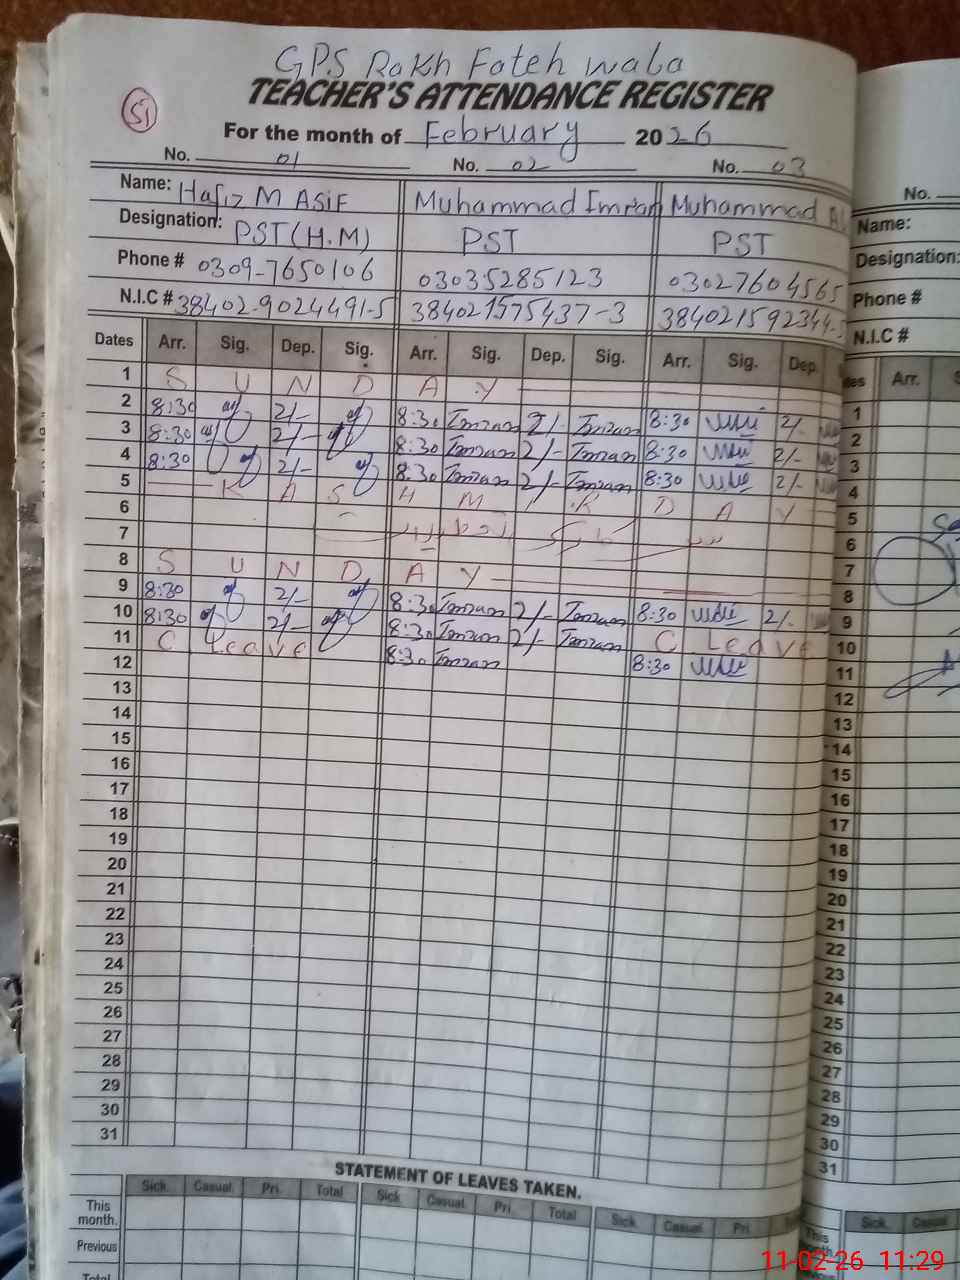 GPS Rakh Fateh wala
51
TEACHER'S ATTENDANCE REGISTER
For the month of February 2026
No. 01 No. 02 No. 03
Name: Hafiz M ASIF Muhammad Imran Muhammad
Designation: PST (H.M) PST PST
Phone # 0309-7650106 03035285123 03027604565
N.I.C # 38402-9024491-5 384021575437-3 384021592344-
Dates Arr. Sig. Dep. Sig. Arr. Sig. Dep. Sig. Arr. Sig. Dep.
1 S U N D A Y
2 8:30 2/- 8:30 Imran 2/- Imran 8:30 2/-
3 8:30 2/- 8:30 Imran 2/- Imran 8:30 2/-
4 8:30 2/- 8:30 Imran 2/- Imran 8:30 2/-
5 K A S H M I R D A Y
6
7
8 S U N D A Y
9 8:30 2/- 8:30 Imran 2/- Imran 8:30 2/-
10 8:30 2/- 8:30 Imran 2/- Imran C Leave
11 C Leave 8:30 Imran 8:30
12
13
14
15
16
17
18
19
20
21
22
23
24
25
26
27
28
29
30
31
STATEMENT OF LEAVES TAKEN.
Sick. Casual. Pri. Total Sick Casual. Pri. Total Sick. Casual. Pri.
This month.
Previous
Total
No.
Name:
Designation:
Phone #
N.I.C #
Arr.
1
2
3
4
5
6
7
8
9
10
11
12
13
14
15
16
17
18
19
20
21
22
23
24
25
26
27
28
29
30
31
Sick. Casual
This month.
Previous
11-02-26 11:29